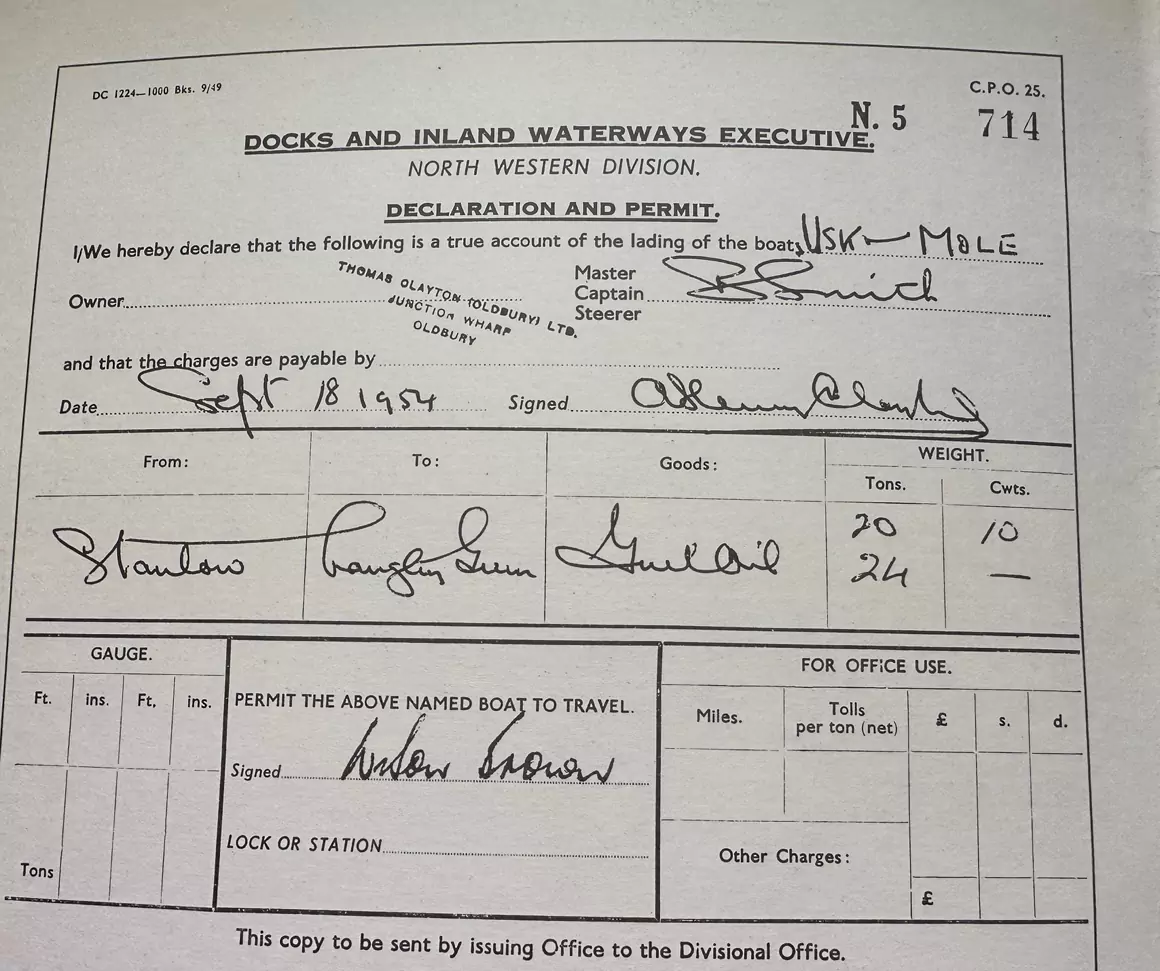 DC 1224—1000 Bks. 9/49
C.P.O. 25.
N. 5 714
DOCKS AND INLAND WATERWAYS EXECUTIVE.
NORTH WESTERN DIVISION.
DECLARATION AND PERMIT.
I/We hereby declare that the following is a true account of the lading of the boats USK — MOLE
Owner
THOMAS CLAYTON (OLDBURY) LTD.
JUNCTION WHARF
OLDBURY
Master
Captain
Steerer
Smith
and that the charges are payable by
Date Sept 18 1954 Signed
From: To: Goods: WEIGHT.
Tons. Cwts.
Stanlow Langley Green Oil 20 10
24 —
GAUGE.
Ft. ins. Ft. ins.
Tons
PERMIT THE ABOVE NAMED BOAT TO TRAVEL.
Signed Brown
LOCK OR STATION
FOR OFFICE USE.
Miles. Tolls per ton (net) £ s. d.
Other Charges:
£
This copy to be sent by issuing Office to the Divisional Office.